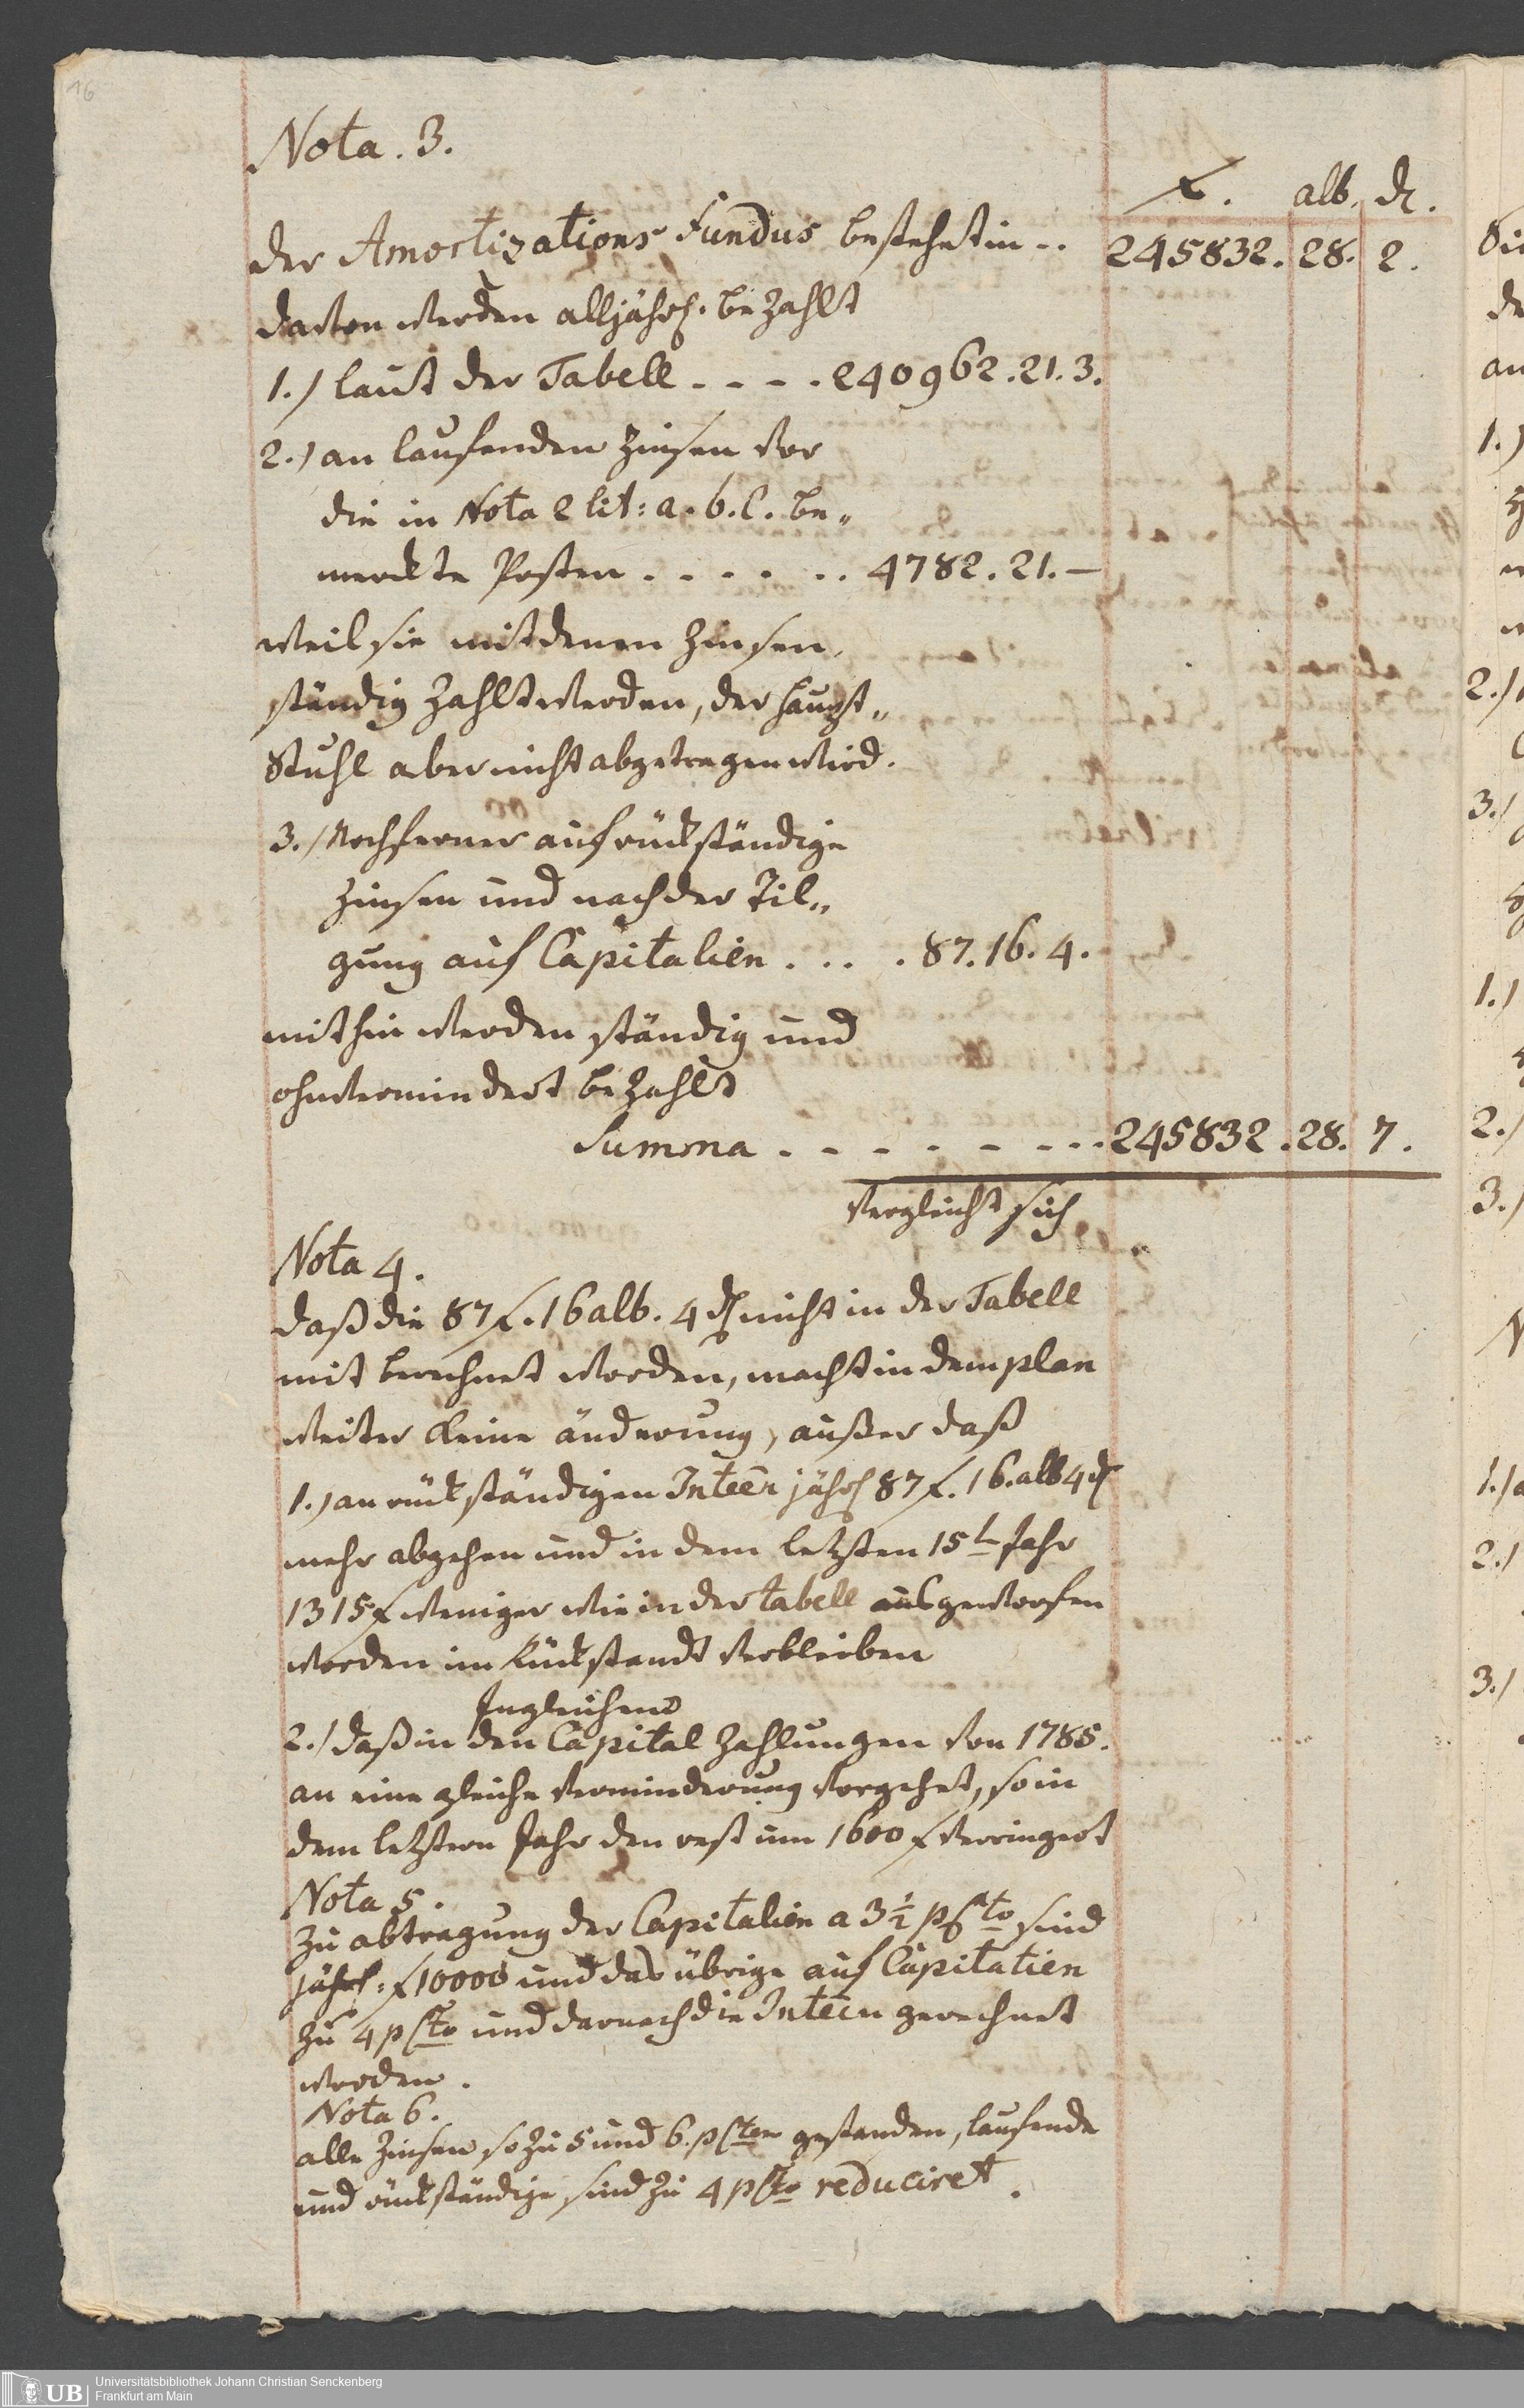 16
Nota. 3.
f. alb. ₰.
der Amortizations Fundus bestehet in .. 245832. 28. 2.
davon werden alljährl. bezahlt
1.) laut der Tabell . . . . 240962. 21. 3.
2.) an laufenden Zinsen vor
die in Nota 2 lit: a. b. c. be„
merckte Posten . . . . . . 4782. 21. —
weil sie mit denen Zinsen,
ständig zahlt werden, der Haupt„
Stuhl aber nicht abgetragen wird.
3.) Noch ferner auf rückständige
Zinsen und nach der Til„
gung auf Capitalien . . . . 87. 16. 4.
mithin werden ständig und
ohnvermindert bezahlt
Summa . . . . . . . . . 245832. 28. 7.
vergleicht sich
Nota 4.
daß die 87 f. 16 alb. 4 ₰ nicht in der Tabell
mit berechnet worden, macht in dem plan
weiter keine änderung, außer daß
1.) an rückständigen Inteen jährl 87 f. 16. alb 4 ₰
mehr abgehen und in dem letzten 15t Jahr
1315 f weniger wie in der tabell ausgeworfen
worden im Rückstandt verbleiben
Ingleichem
2.) daß in den Capital Zahlungen von 1785.
an eine gleiche verminderung vorgehet, so in
dem letztern Jahr den rest um 1600 f verringert
Nota 5.
zu abtragung der Capitalien a 3 1/2 p Cto sind
jährl: f 10000 und das übrige auf Capitalien
zu 4 p Cto und darnach die Inteen gerechnet
worden.
Nota 6.
alle Zinsen so zu 5 und 6. p Cten gestanden, laufende
und rückständige sind zu 4 p Cto reduciret.
Universitätsbibliothek Johann Christian Senckenberg
UB Frankfurt am Main